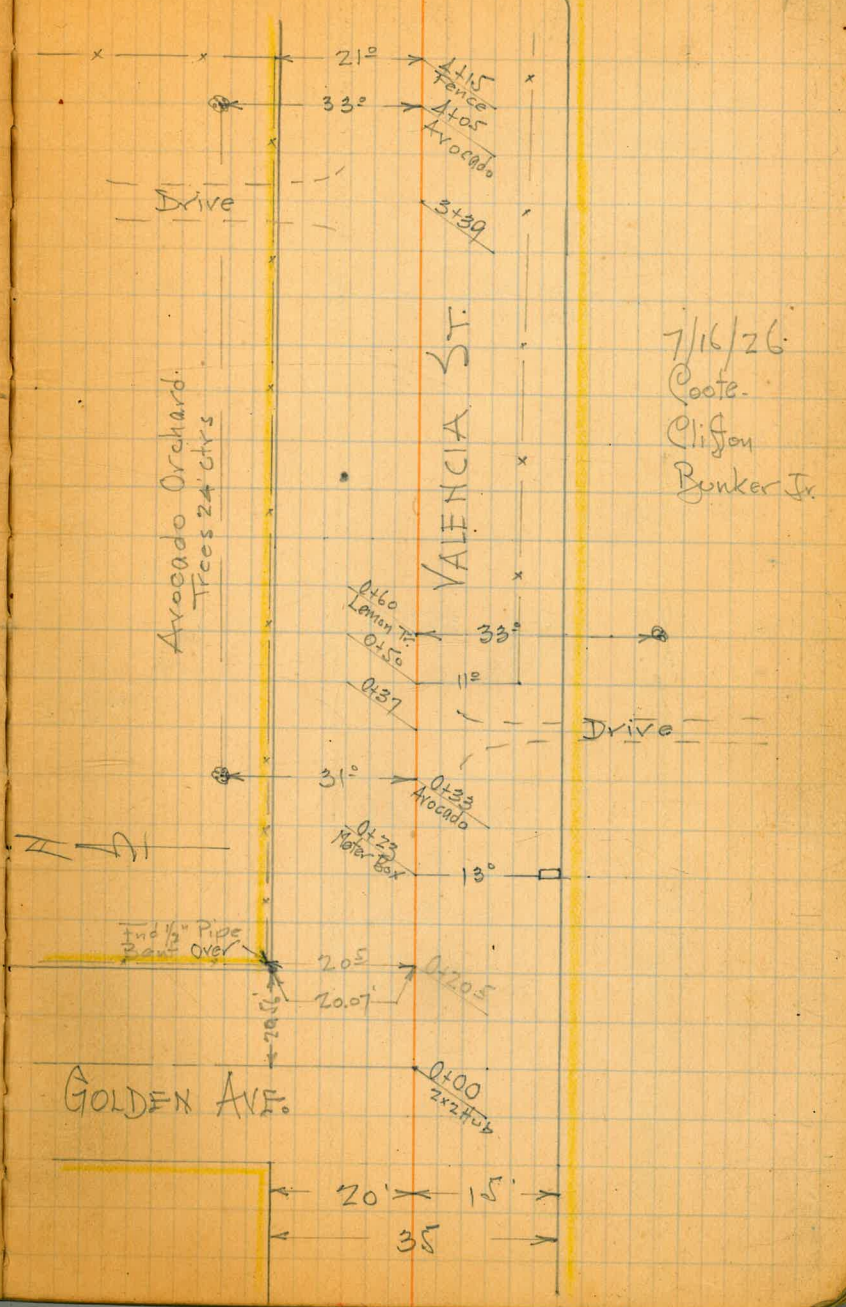 21⁰
4+15
Fence
33⁰
4+05
Avocado
Drive
3+39
VALENCIA ST.
7/16/26
Coote.
Clifton
Bunker Jr.
Avocado Orchard.
Trees 24' ctrs
0+60
Lemon Tr.
33⁰
0+50
11⁰
0+37
Drive
31⁰
0+33
Avocado
0+23
Meter Box
13⁰
Fnd ½" Pipe
Bent over
20⁵
0+20.5
20.07'
0+00
2x2 Hub
GOLDEN AVE.
20' 15'
35